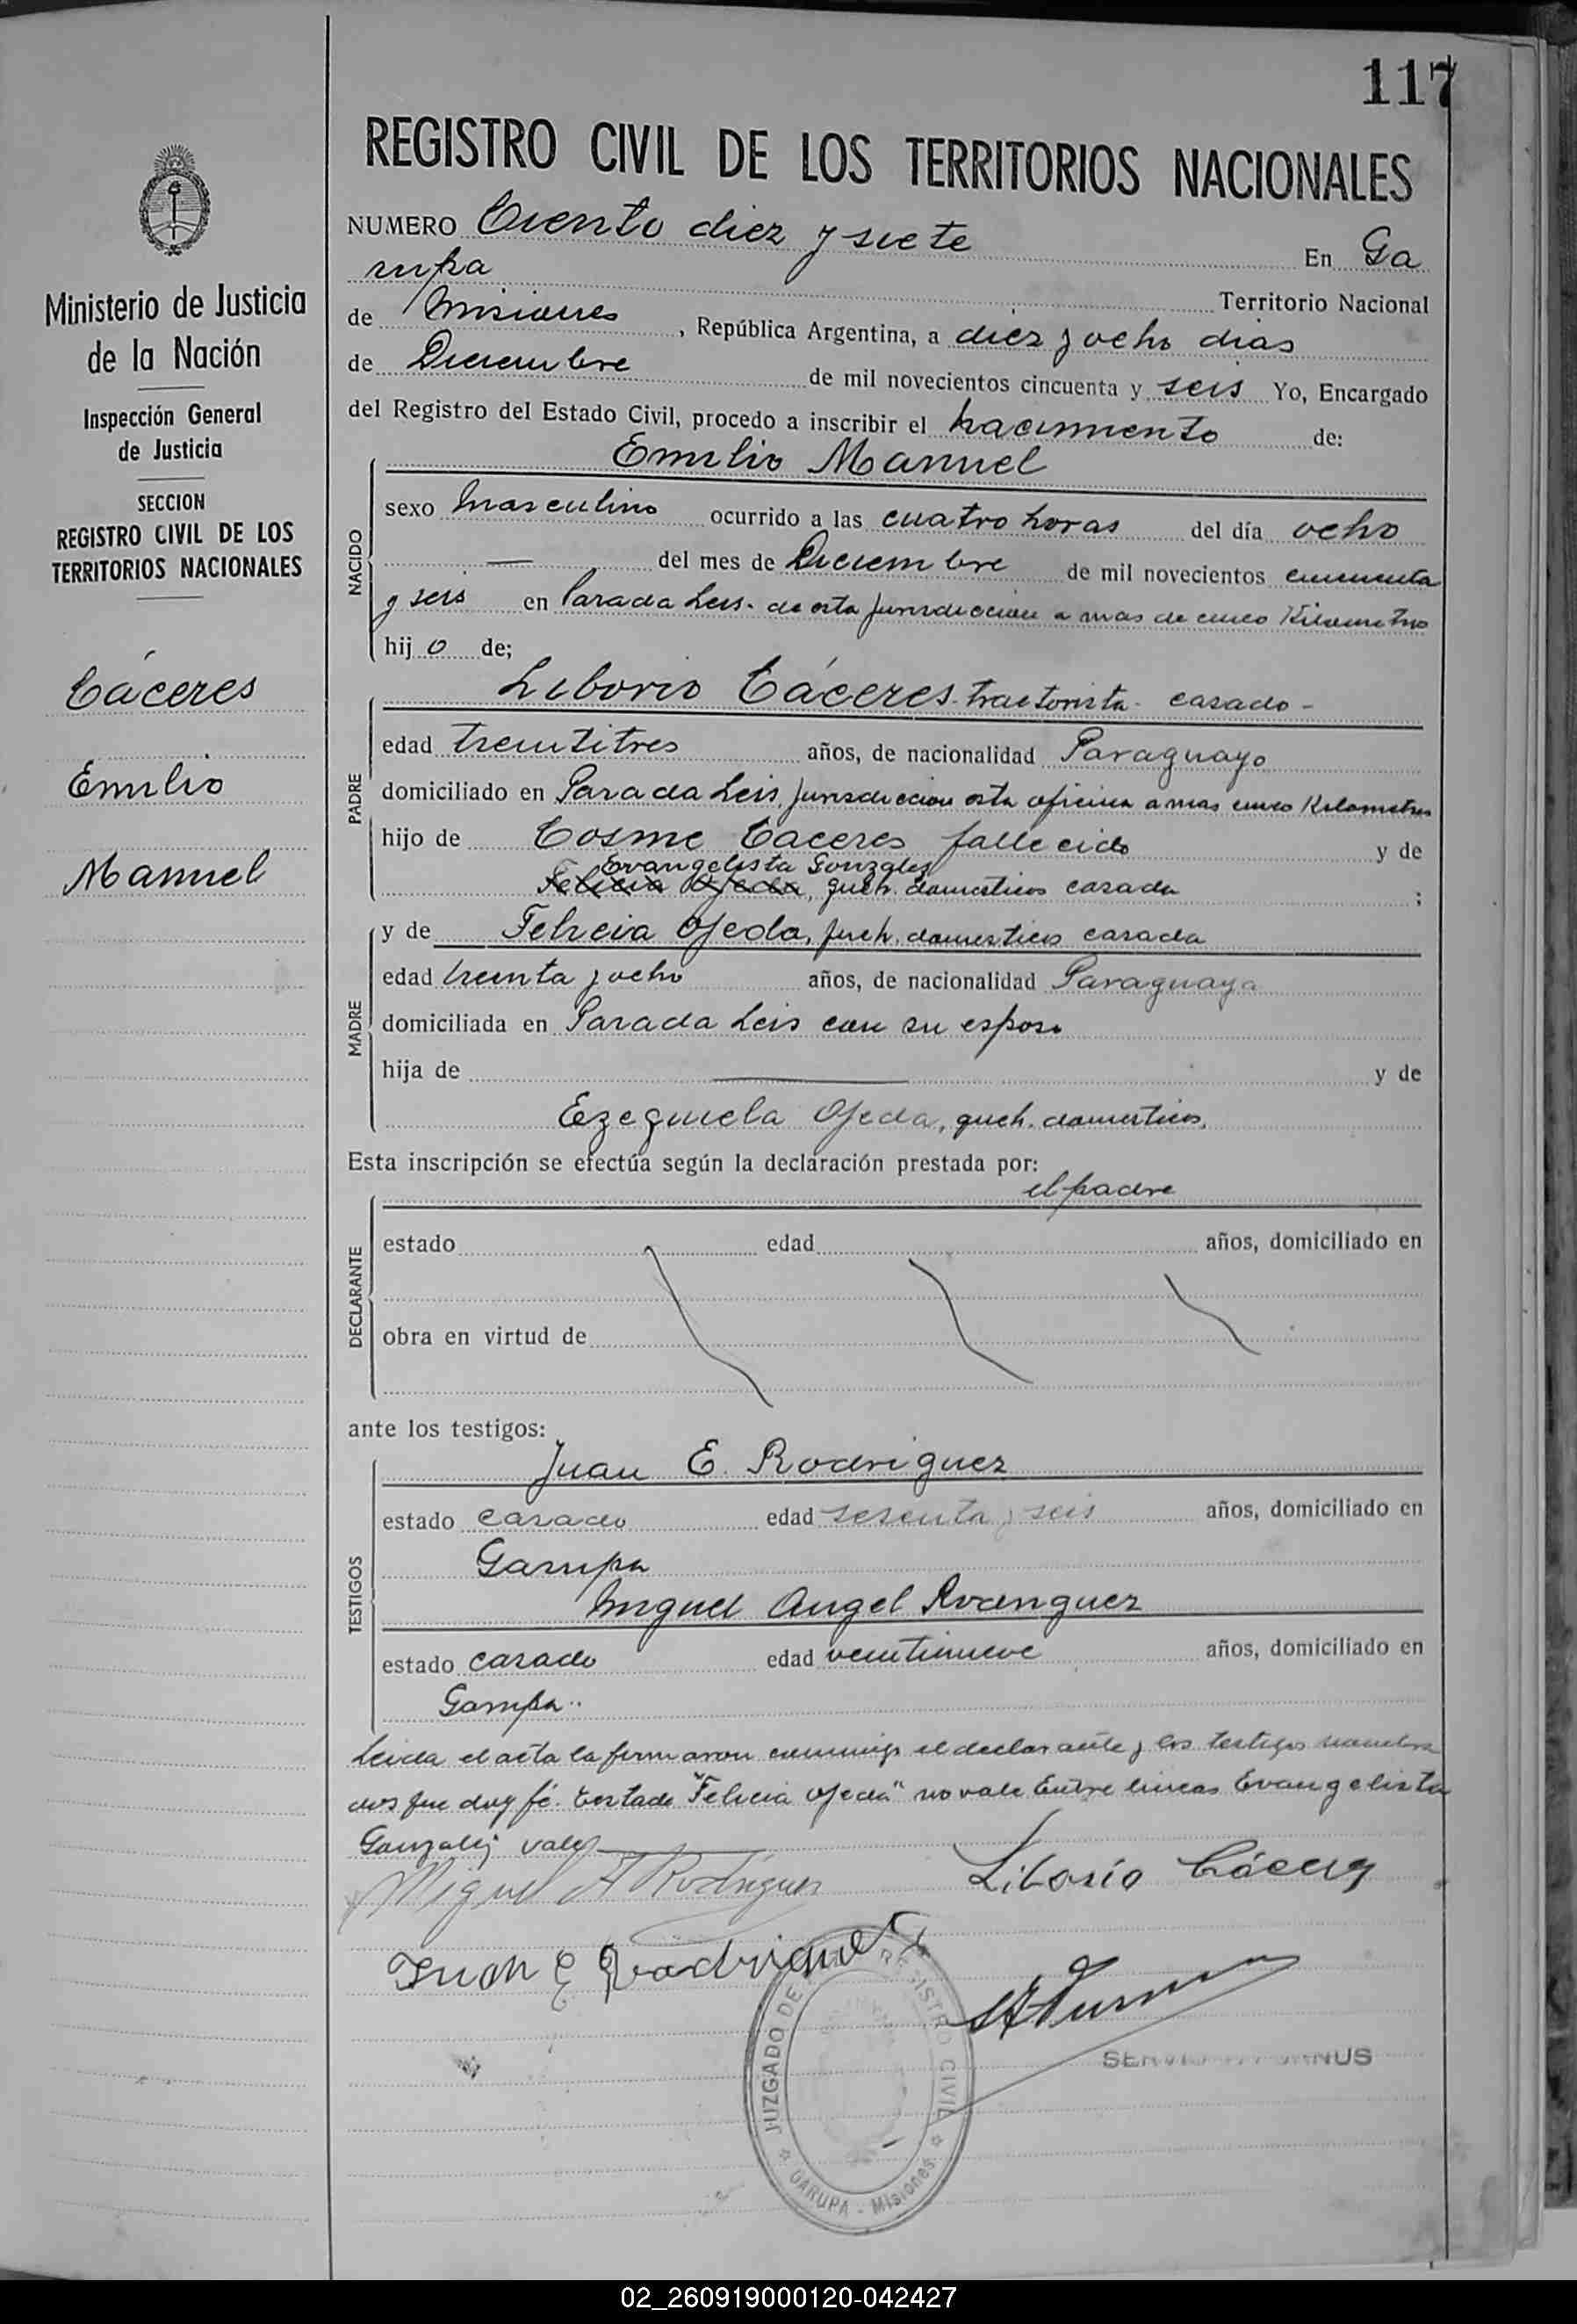 117
REGISTRO CIVIL DE LOS TERRITORIOS NACIONALES
NUMERO Ciento diez y siete En Ga
rupa Territorio Nacional
de Misiones, República Argentina, a diez y ocho dias
de Diciembre de mil novecientos cincuenta y seis Yo, Encargado
del Registro del Estado Civil, procedo a inscribir el nacimiento de:
Ministerio de Justicia
de la Nación
Inspección General
de Justicia
SECCION
REGISTRO CIVIL DE LOS
TERRITORIOS NACIONALES
Cáceres
Emilio
Manuel
NACIDO
Emilio Manuel
sexo masculino ocurrido a las cuatro horas del día ocho
— del mes de Diciembre de mil novecientos cincuenta
y seis en Parada Leis. de esta jurisdiccion a mas de cinco Kilometros
hijo de;
PADRE
Liborio Cáceres. tractorista - casado -
edad treintitres años, de nacionalidad Paraguayo
domiciliado en Parada Leis, jurisdiccion esta oficina a mas cinco Kilometros
hijo de Cosme Caceres fallecido y de
Evangelista Gonzalez
Felicia Ojeda, queh. domesticos casada ;
MADRE
y de Felicia Ojeda, queh. domesticos casada
edad treinta y ocho años, de nacionalidad Paraguaya
domiciliada en Parada Leis con su esposo
hija de — y de
Ezequiela Ojeda, queh. domesticos.
Esta inscripción se efectúa según la declaración prestada por:
el padre
DECLARANTE
estado edad años, domiciliado en
obra en virtud de
ante los testigos:
TESTIGOS
Juan E. Rodriguez
estado casado edad sesenta y seis años, domiciliado en
Garupa
Miguel Angel Rodriguez
estado casado edad veintinueve años, domiciliado en
Garupa..
Leida el acta la firmaron conmigo el declarante y los testigos nombra
dos que doy fé. Testado "Felicia Ojeda" no vale Entre lineas Evangelista
Gonzalez vale
Miguel A Rodriguez Liborio Cáceres
Juan E Rodriguez
JUZGADO DE REGISTRO CIVIL
GARUPA - Misiones
02_260919000120-042427